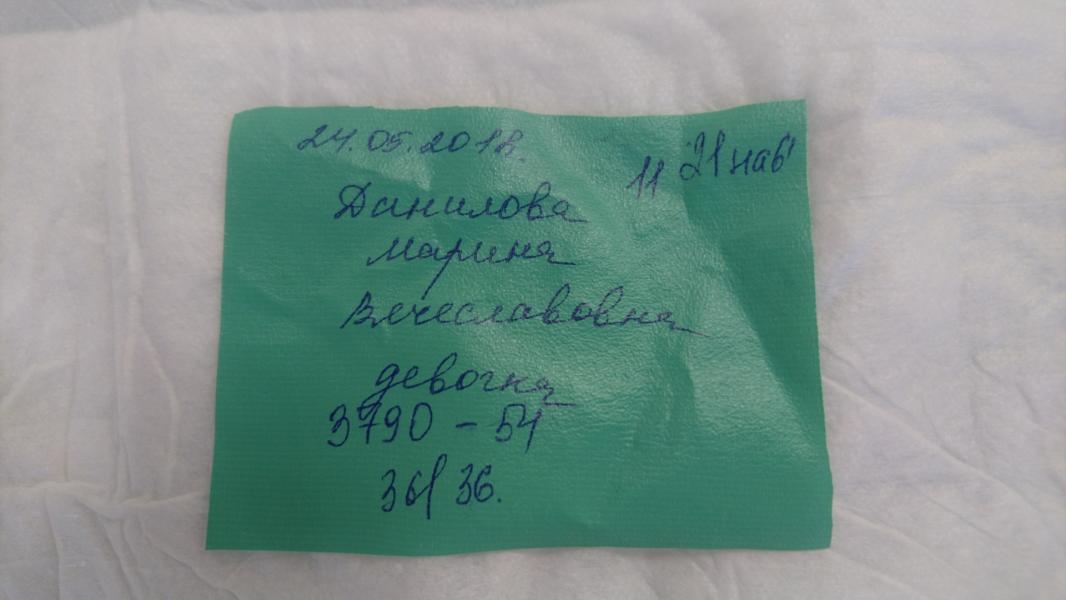 24.05.2018.
11 21 наб
Данилова
Марина
Вячеславовна
девочка
3790 - 54
36/36.